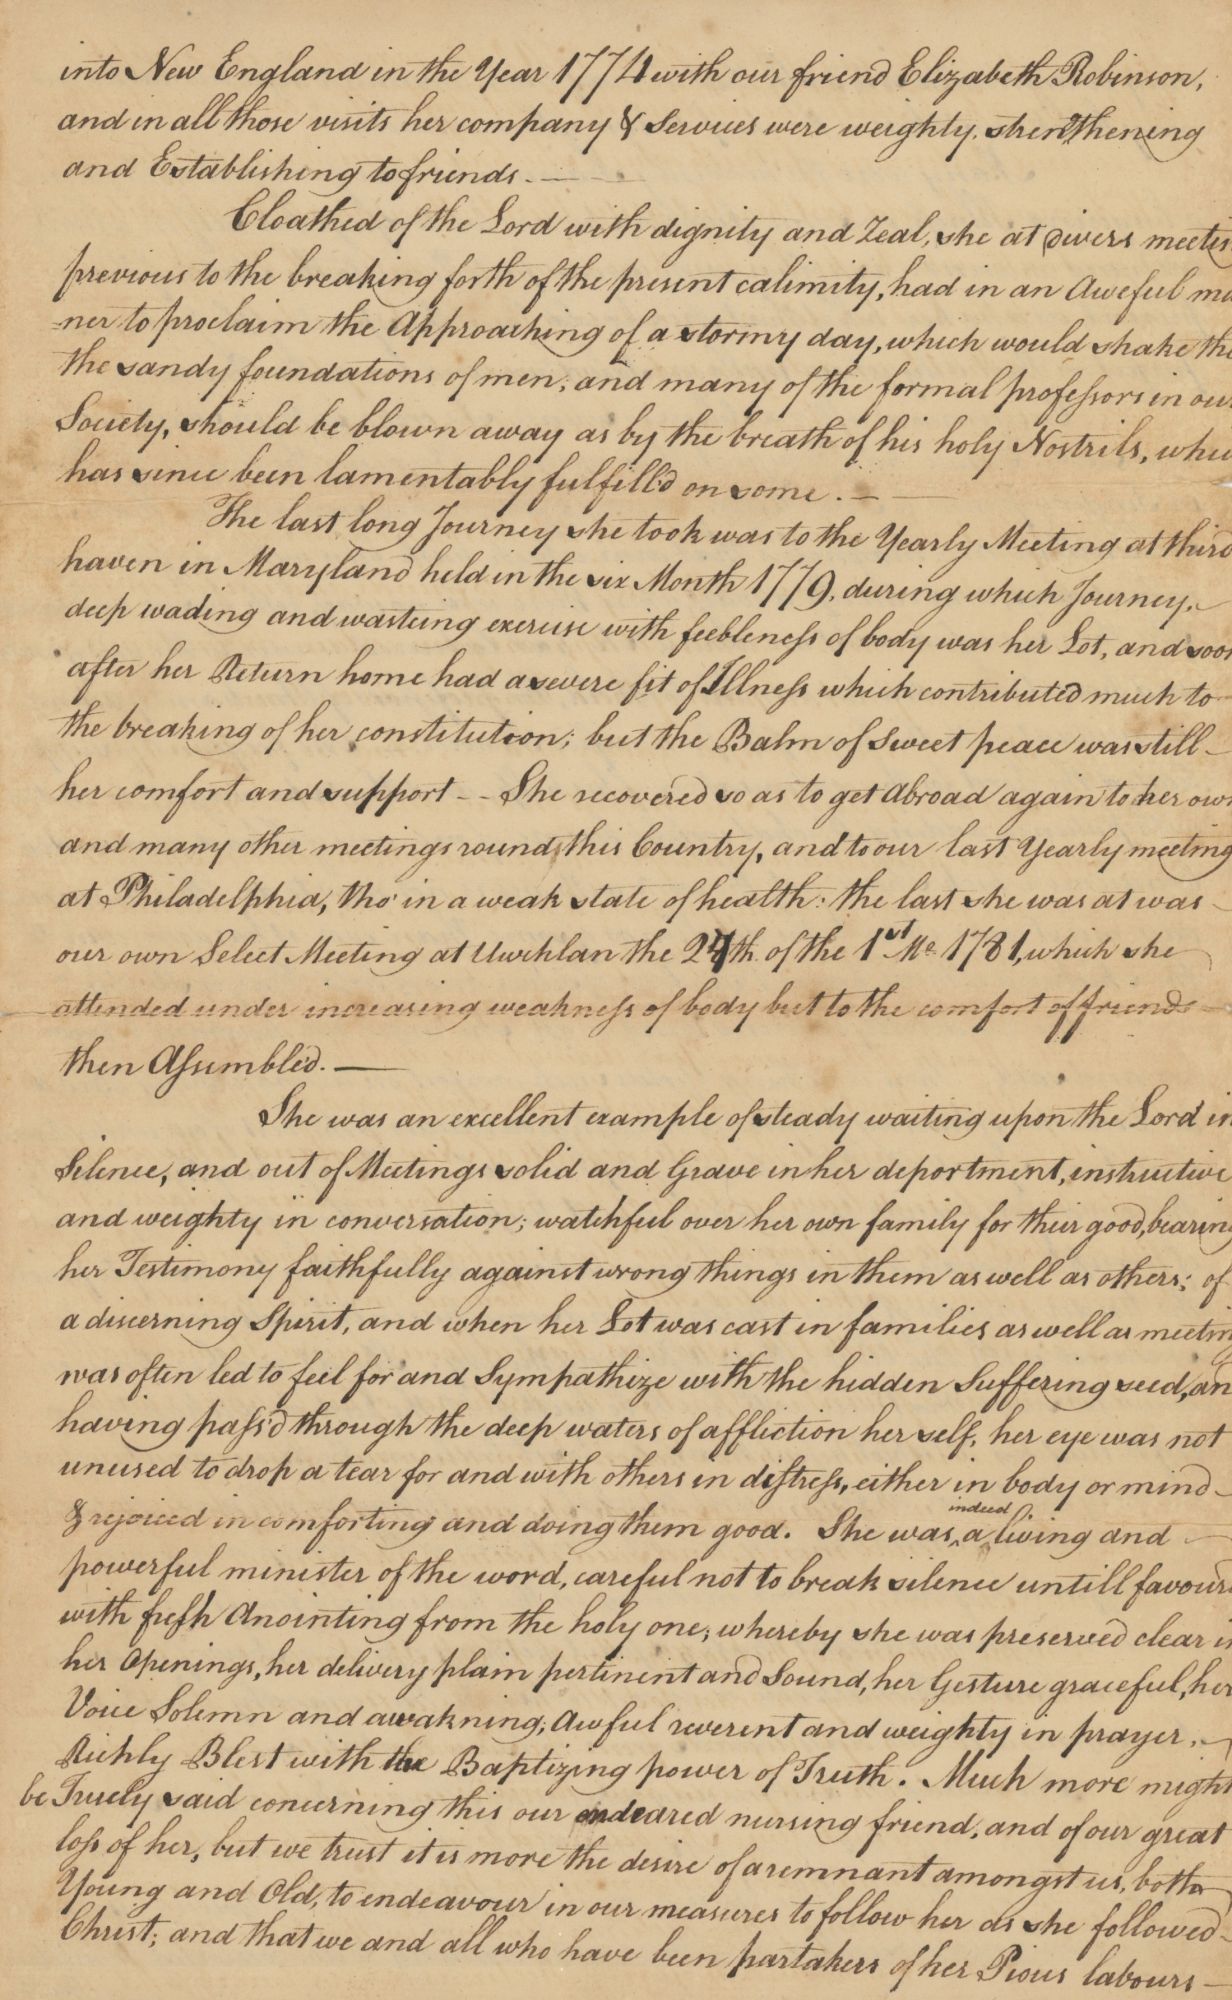 into New England in the Year 1774 with our friend Elizabeth Robinson,
and in all those visits her company & Services were weighty, strenthening
and Establishing to friends. —
Cloathed of the Lord with dignity and Zeal, she at divers meetin
previous to the breaking forth of the present calimity, had in an Aweful ma
-ner to proclaim the Approaching of a stormy day, which would shake the
the sandy foundations of men, and many of the formal professors in our
Society, should be blown away as by the breath of his holy Nostrils, whic
has since been lamentably fulfill'd on some. —
The last long Journey she took was to the Yearly Meeting at third
haven in Maryland held in the six Month 1779, during which Journey,
deep wading and wasteing exercise with feebleness of body was her Lot, and soon
after her Return home had a severe fit of Illness which contributed much to
the breaking of her constitution; but the Balm of Sweet peace was still —
her comfort and support -- She recovered so as to get abroad again to her own
and many other meetings round this Country, and to our last Yearly meeting
at Philadelphia, tho' in a weak state of health: the last she was at was —
our own Select Meeting at Uwchlan the 24th of the 1st Mo 1781, which she
attended under increasing weakness of body but to the comfort of friends —
then Assembled. —
She was an excellent example of steady waiting upon the Lord in
Silence, and out of Meetings solid and Grave in her deportment, instructive
and weighty in conversation; watchful over her own family for their good, bearing
her Testimony faithfully against wrong things in them as well as others; of
a discerning Spirit, and when her Lot was cast in families as well as meeting
was often led to feel for and Sympathize with the hidden Suffering seed, an
having pass'd through the deep waters of affliction her self, her eye was not
unused to drop a tear for and with others in distress, either in body or mind —
& rejoiced in comforting and doing them good. She was indeed a living and —
powerful minister of the word, careful not to break silence untill favour
with fresh Anointing from the holy one; whereby she was preserved clear in
her Openings, her delivery plain pertinent and Sound, her Gesture graceful, her
Voice Solemn and awakning, Awful reverent and weighty in prayer, —
Richly Blest with the Baptizing power of Truth. Much more might
be Truely said concerning this our endeared nursing friend, and of our great
loss of her, but we trust it is more the desire of a remnant amongst us, both
Young and Old, to endeavour in our measures to follow her as she followed —
Christ; and that we and all who have been partakers of her Pious labours —